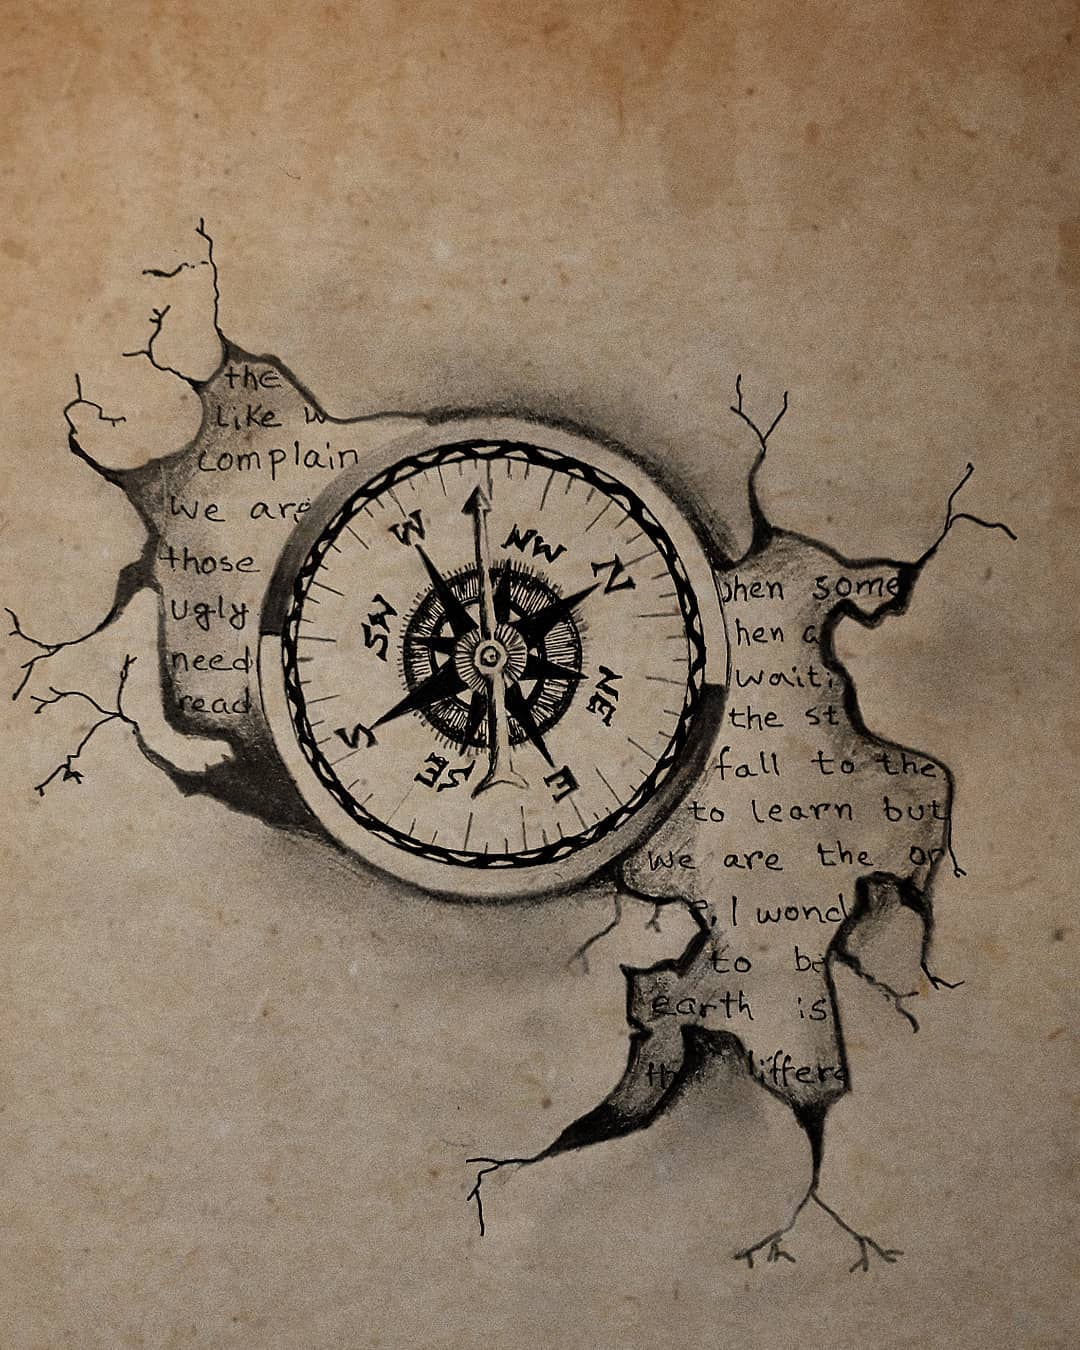 the
like w
complain
we are
those
ugly
need
read
W
NW
N
SW
NE
S
SE
E
when some
hen a
waiti
the st
fall to the
to learn but
we are the or
e, I wond
to be
earth is
th differe